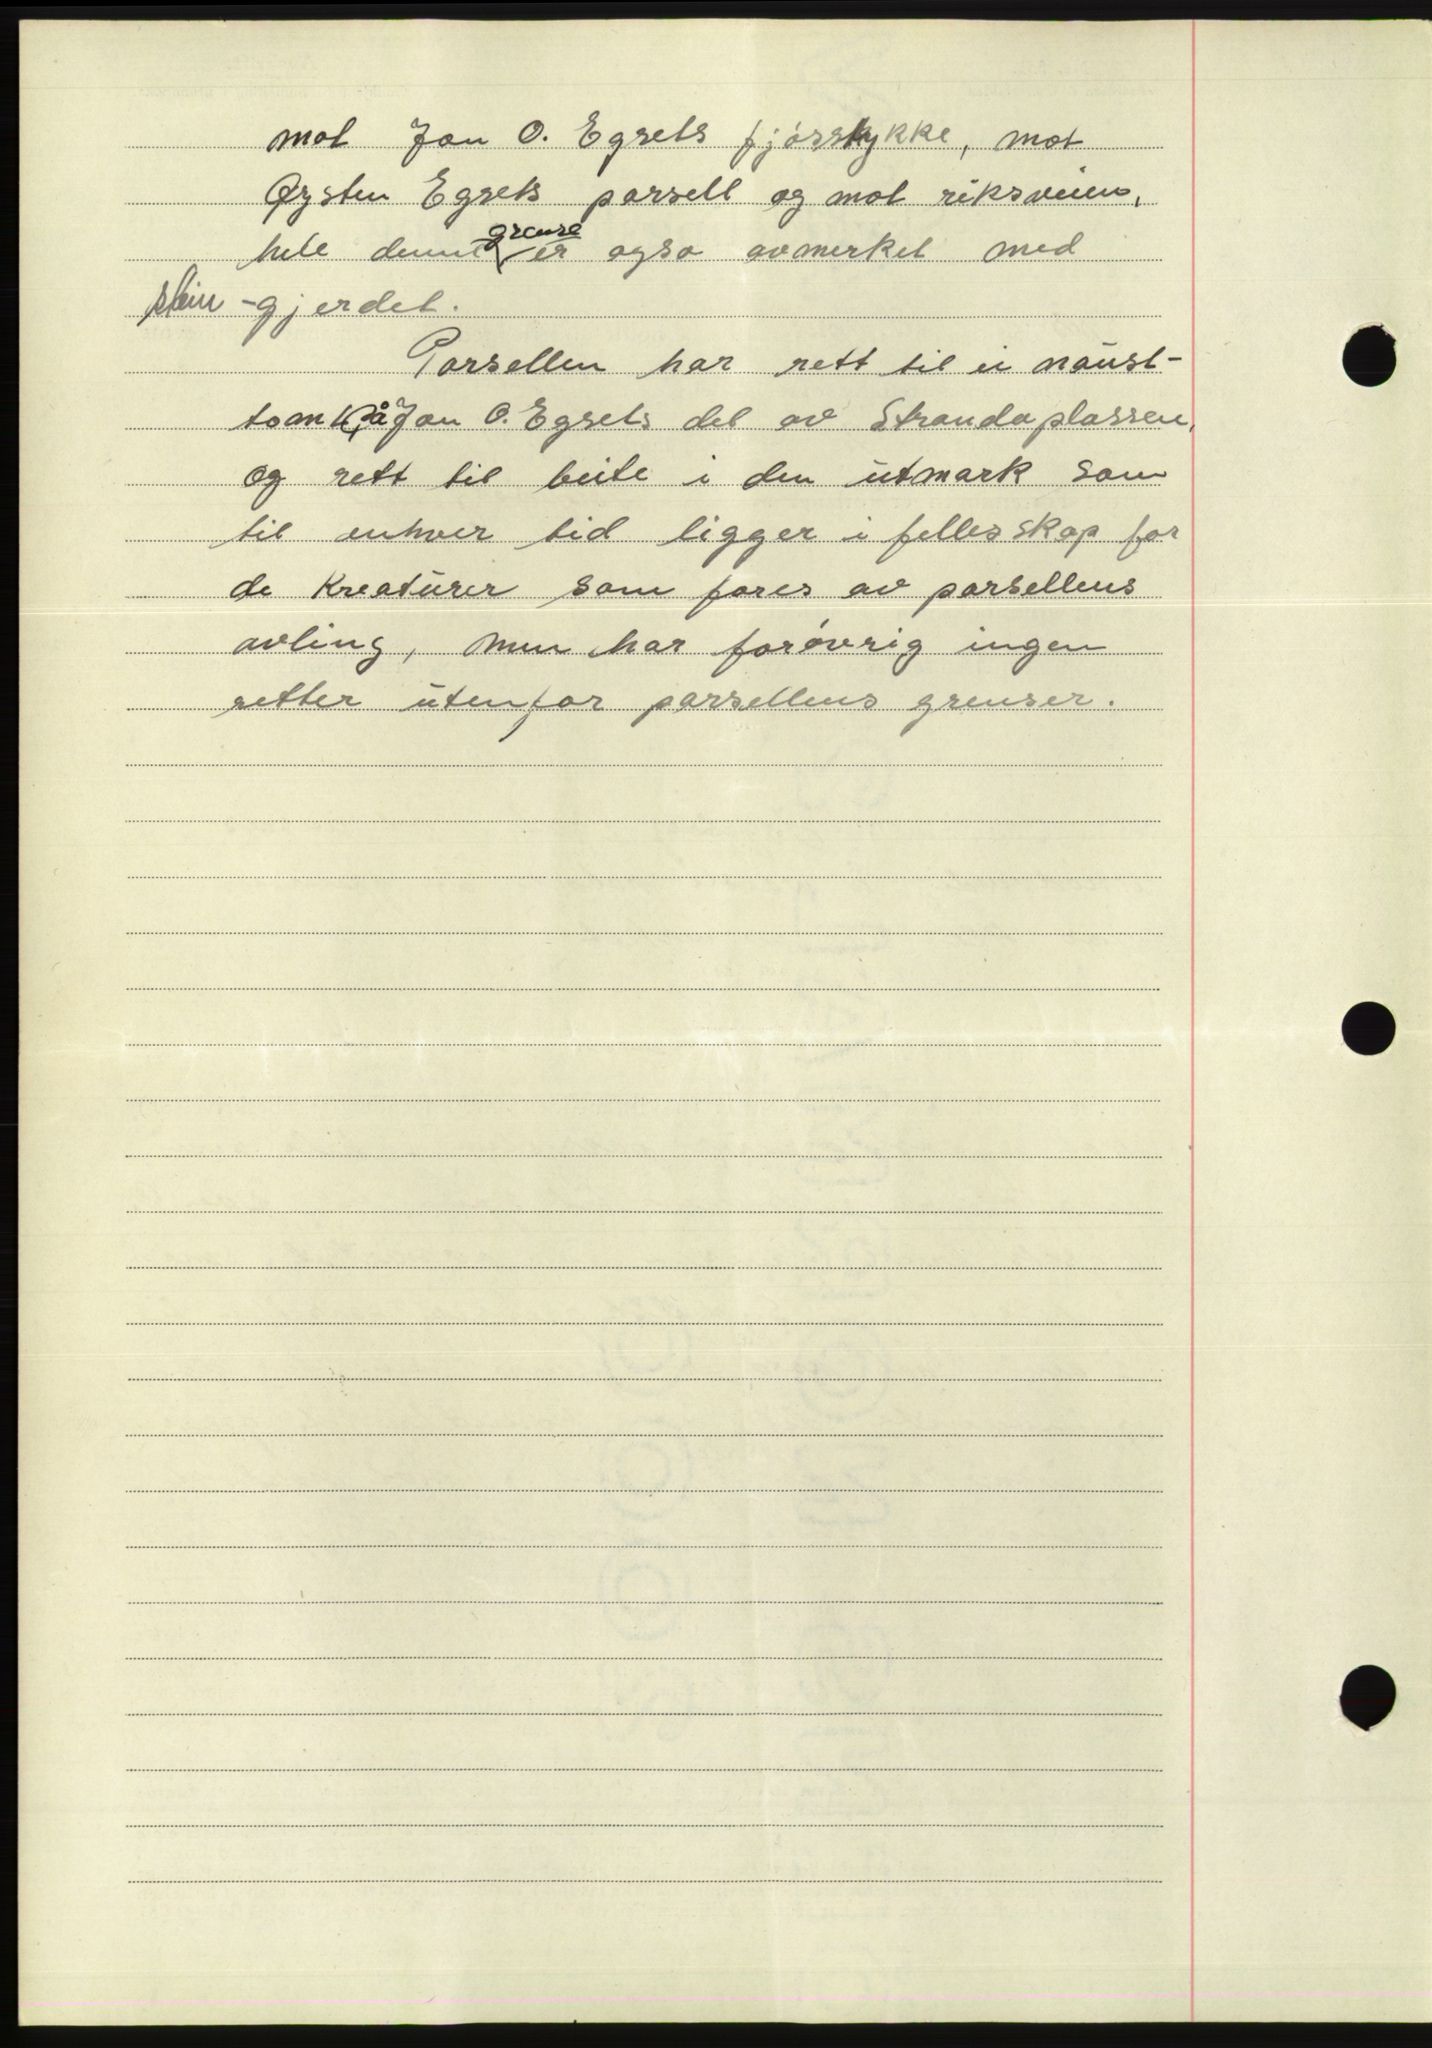 mot Jon O. Egsets fjósstykke, mot
Øysten Egsets parsell og mot riksveien,
hele denne grense er også avmerket med
stein-gjerdet.
Parsellen har rett til ei naust-
tomt på Jon O. Egsets del av Strandaplassen,
og rett til beite i den utmark som
til enhver tid ligger i fellesskap for
de kreaturer som fores av parsellens
avling, men har forøvrig ingen
retter utenfor parsellens grenser.